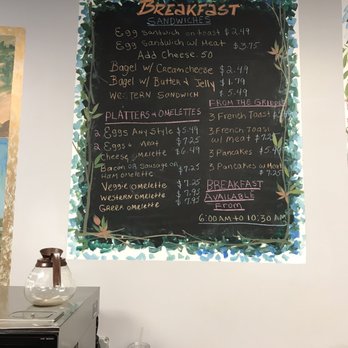 BREAKFAST
SANDWICHES
Egg Sandwich on toast $2.49
Egg Sandwich w/ Meat $3.75
Add Cheese .50
Bagel w/ Creamcheese $2.49
Bagel w/ Butter & Jelly $1.79
WESTERN SANDWICH $5.49
PLATTERS & OMELETTES
2 Eggs Any Style $5.49
2 Eggs & Meat $7.25
Cheese Omelette $6.49
Bacon or Sausage or
Ham omelette $7.25
Veggie omelette $7.25
Western omelette $7.95
Greek omelette $7.95
FROM THE GRIDDLE
3 French Toast
3 French Toast
w/ Meat $7.25
3 Pancakes
3 Pancakes w/ Meat
BREAKFAST
AVAILABLE
FROM
6:00 AM to 10:30 AM